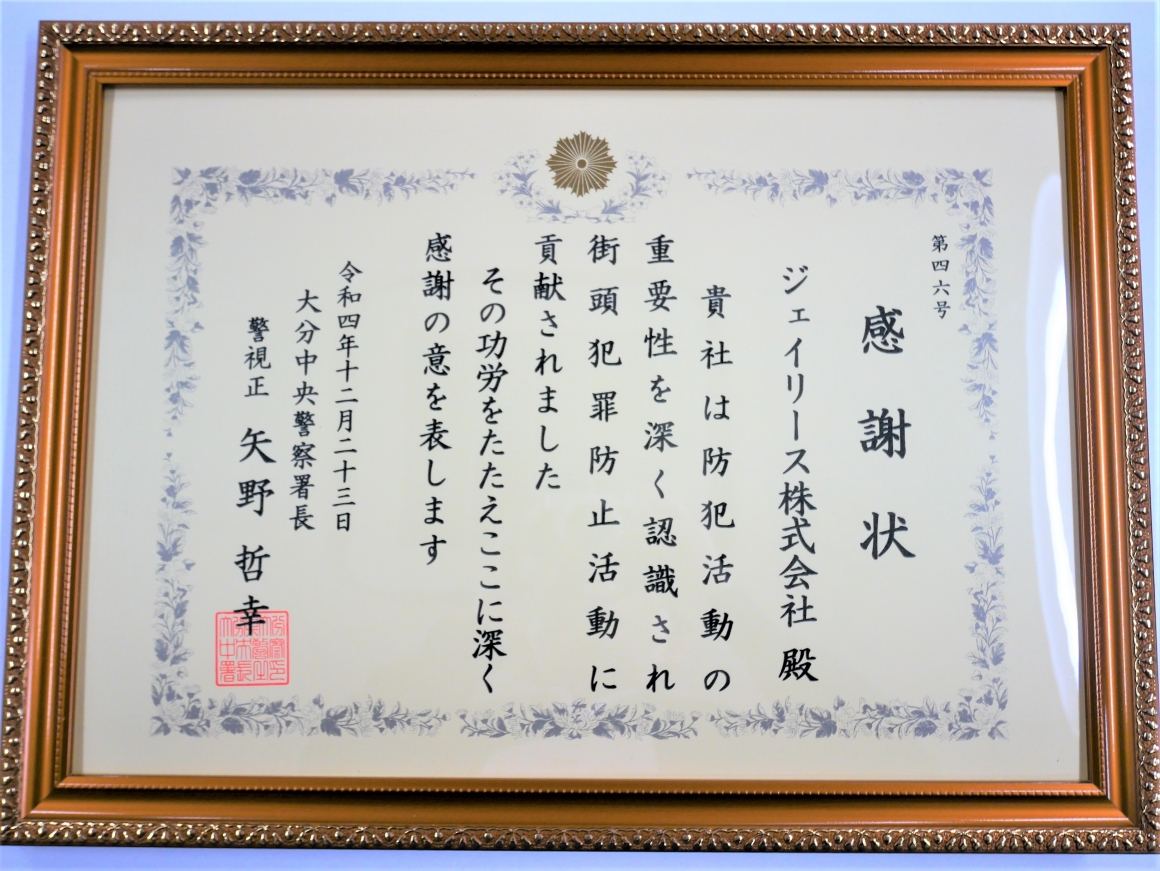 第四六号
感謝状
ジェイリース株式会社 殿
貴社は防犯活動の
重要性を深く認識され
街頭犯罪防止活動に
貢献されました
その功労をたたえここに深く
感謝の意を表します
令和四年十二月二十三日
大分中央警察署長
警視正 矢野哲幸